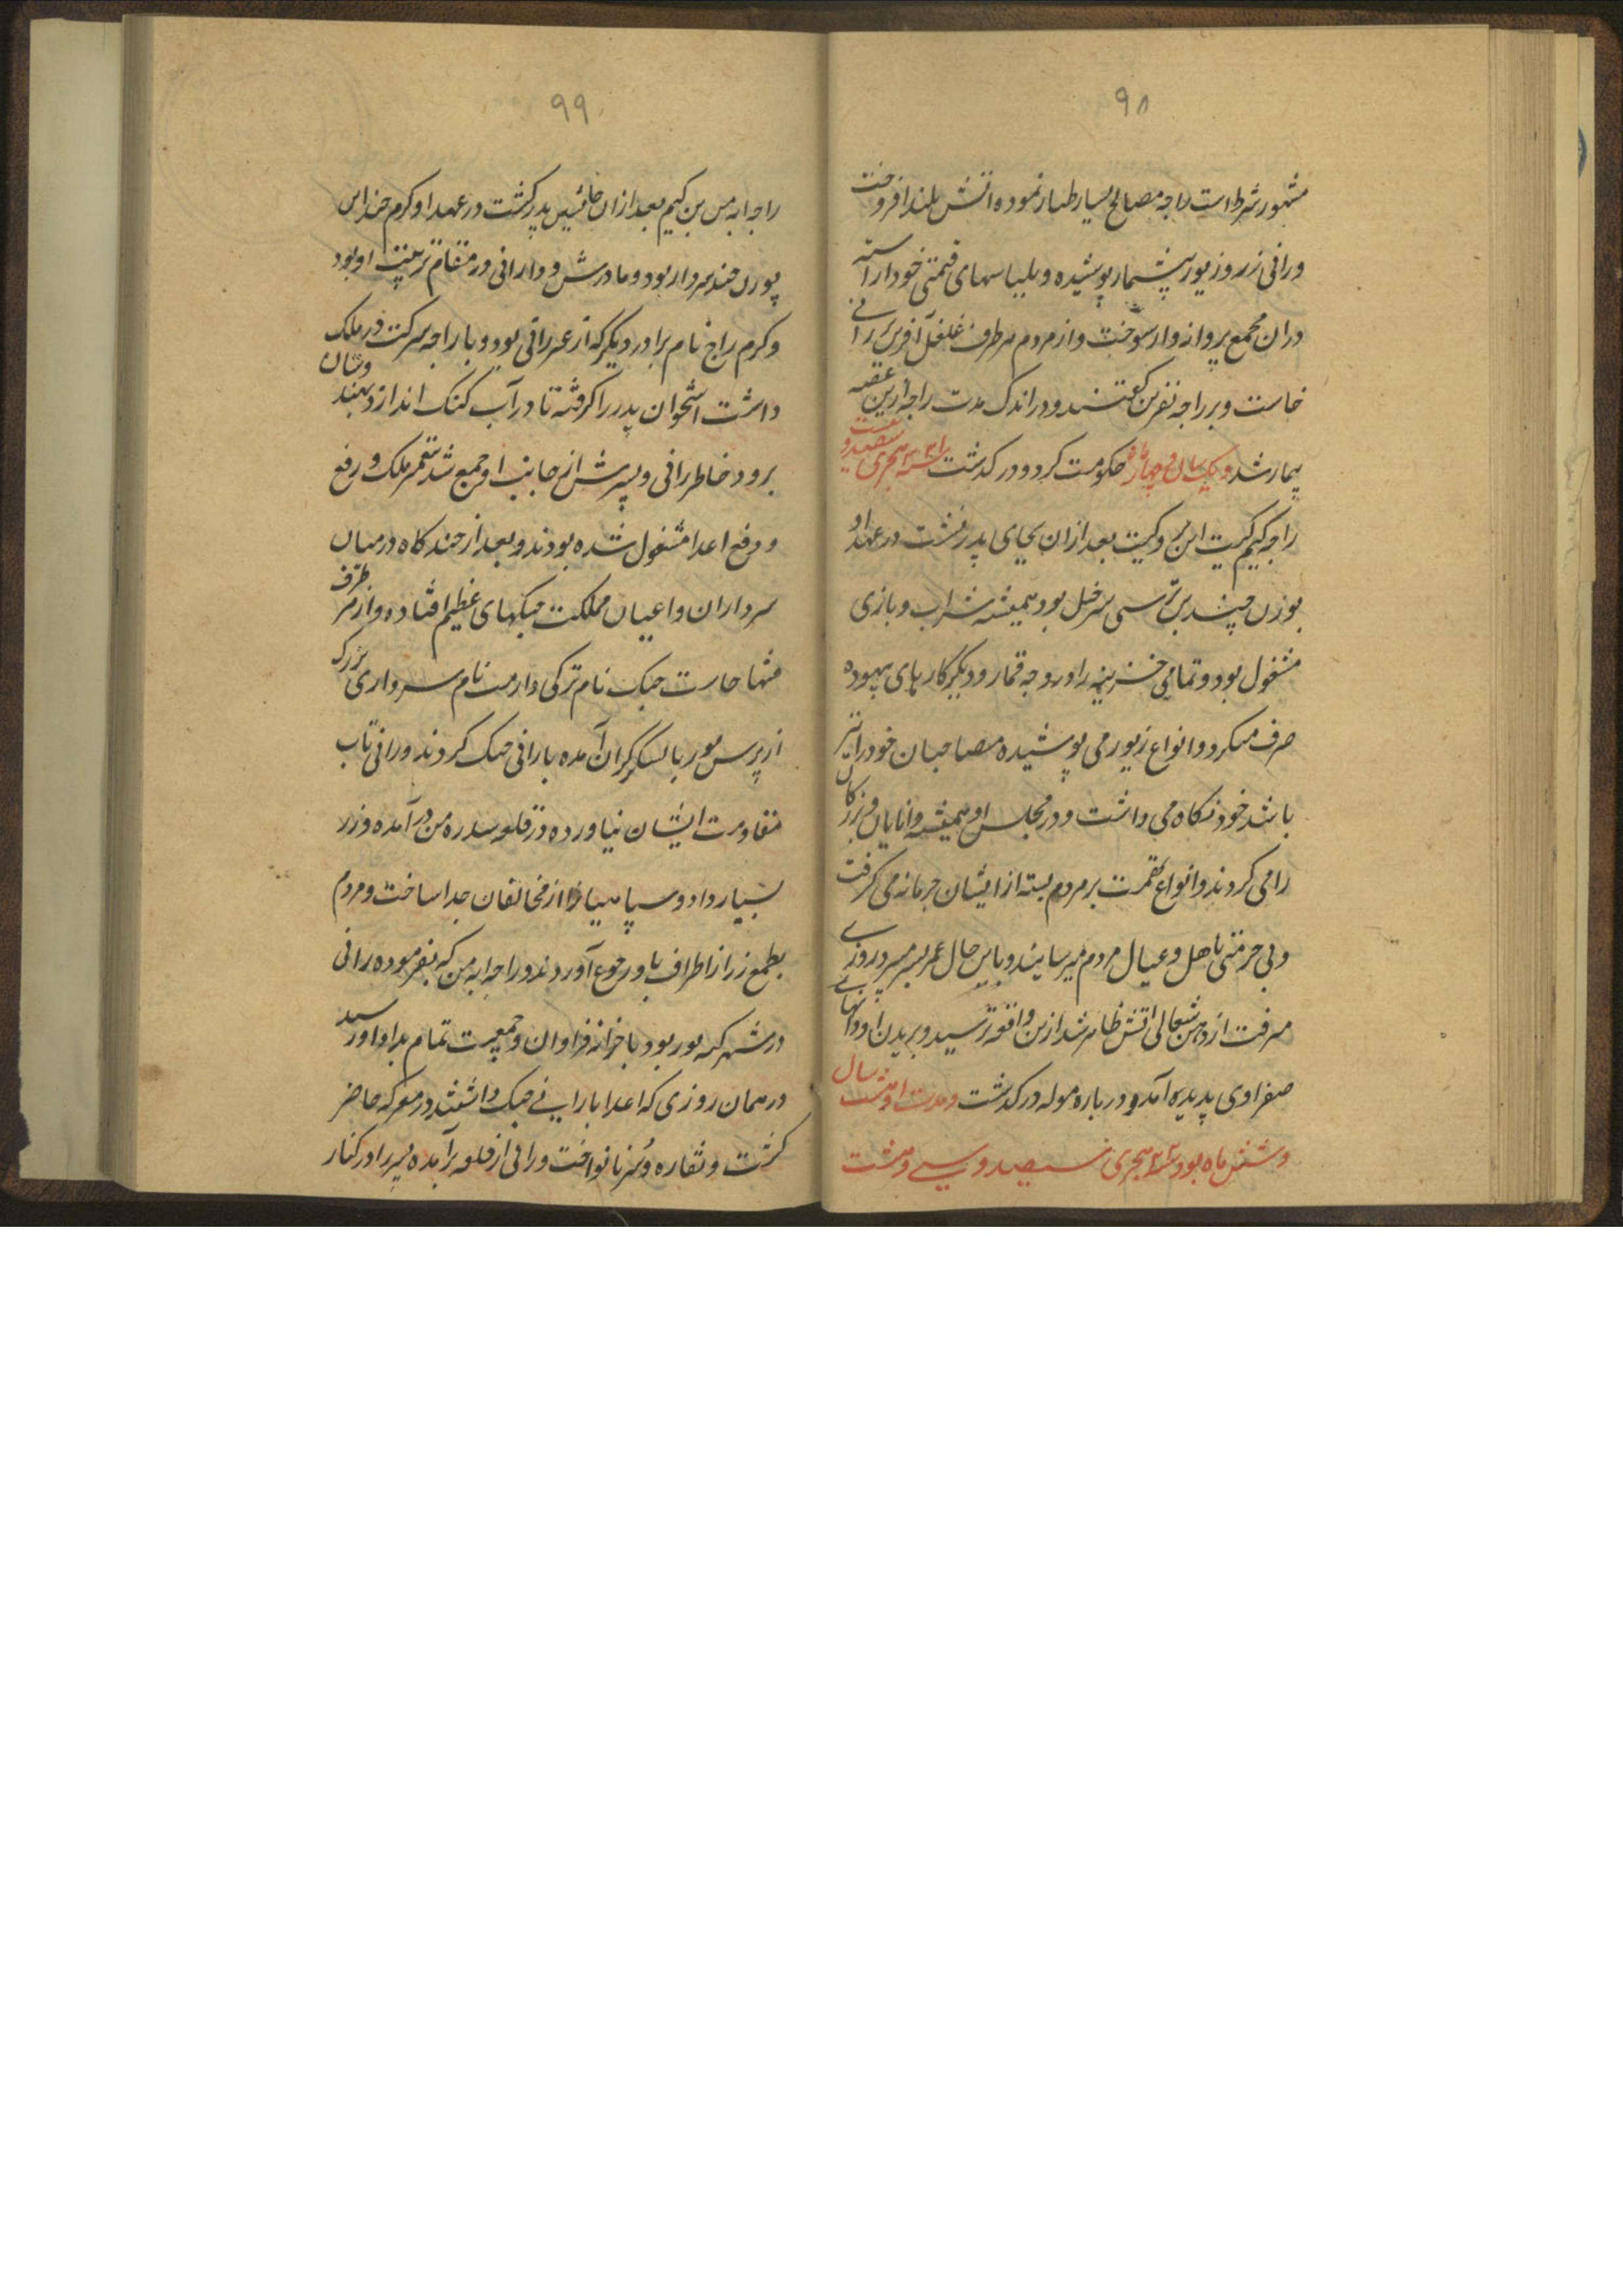 ۹۸
مشهور شرط است راجه مصالح بسیار طیار نموده اتش بلند افروخت
ورانی زر و زیور بیشمار پوشیده و بلباسهای قیمتی خود اراسته
دران مجمع پروانه وار سوخت و از مردم هر طرف غلغل آفرین
خاست و بر راجه نفرین گفتند و در اندک مدت راجه ازین غصه
بیمار شد و یکسال و چهار ماه حکومت کرد و درگذشت
راجه کیم کیت ابن بعد ازان بجای پدر نشست در عهد او
سرخیل بود همیشه شراب و بازی
مشغول بود و تمامی خزینه را در وجه قمار و دیگر کارهای بیهوده
صرف میکرد و انواع زیور می پوشیده مصاحبان خود را نیز
باشد خود نگاه می داشت و در مجلس او همیشه دانایان و بزرگان
را می کردند و انواع تهمت بر مردم بسته از ایشان جرمانه می گرفت
و بی حرمتی باهل و عیال مردم میرسانیند و باین حال عمر بسر میبرد روزی
میرفت از دهن شغالی اتش ظاهر شد ازین واقعه ترسید و بریدن او
صفراوی پدیده آمد و درباره موله درگذشت و مدت او هشت سال
و شش ماه بود هجری سیصد و سی و هشت
۹۹
راجه ابه من بن کیم بعد ازان جانشین پدر گشت در عهد او کرم
پورن چند سردار بود و مادرش ودارانی در مقام تربیت او بود
و کرم راج نام برادر دیگر که از غیر رانی بود و با راجه شرکت در ملک
داشت استخوان پدر را گرفته تا در آب گنگ اندازد بهندوستان
برود خاطر رانی و پسرش از جانب او جمع شد بتعمیر ملک و رفع
و دفع اعدا مشغول شده بودند و بعد از چند گاه در میان
سرداران و اعیان مملکت جنگهای عظیم افتاده و از هر طرف
فتنها خاست جنک نام ترکی دارمت نام سرداری بزرگ
از پرس پور با لشکر گران آمده با رانی جنک کردند و رانی تاب
مقاومت ایشان نیاورده در قلعه در آمده و زر
بسیار داد و سپاهیانرا از مخالفان جدا ساخت و مردم
بطمع زر از اطراف باو رجوع آوردند و راجه ابه من که بفرموده رانی
در شهر پور بود با خزانه فراوان و جمعیت تمام بداد او رسید
در همان روزی که اعدا با رانی جنک داشتند در معرکه حاضر
گشت و نقاره و سرنا نواخت و رانی از قلعه برآمده پسر را در کنار